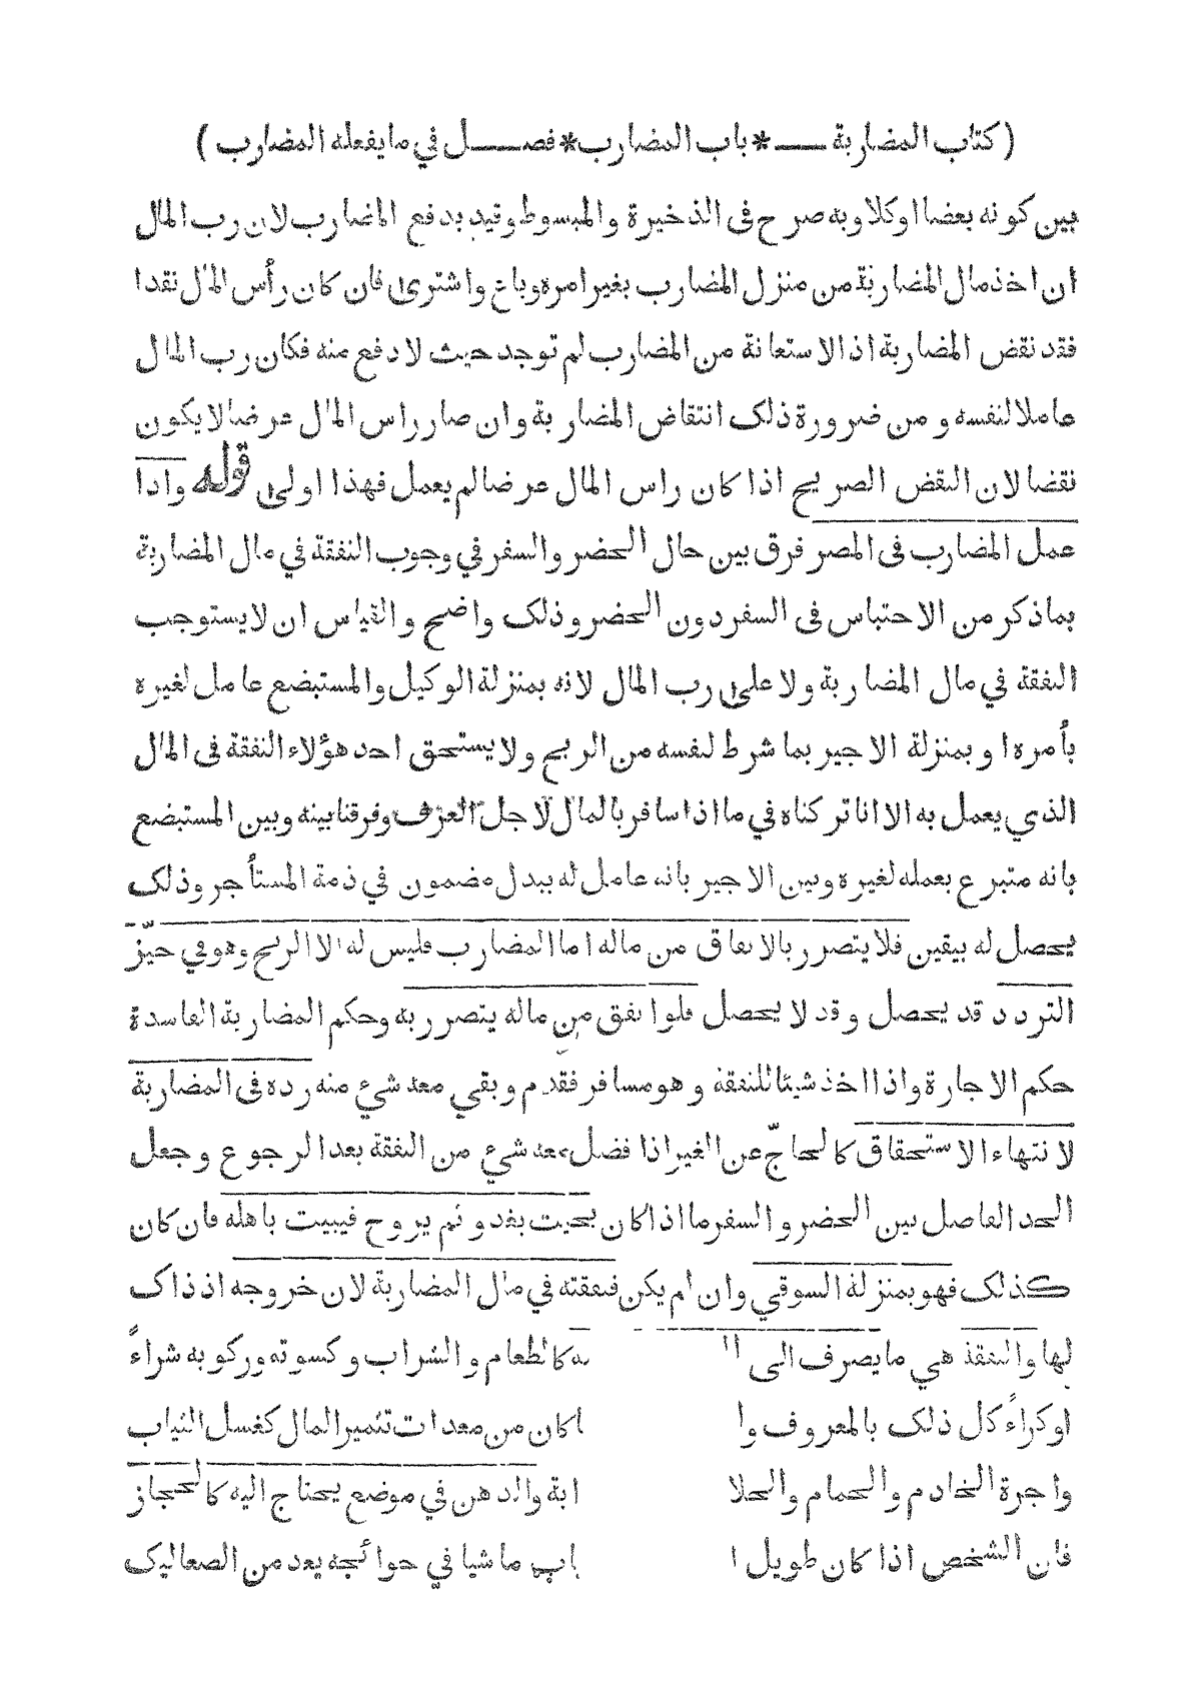 ( كتاب المضاربة ـــ * باب المضارب * فصـــل في ما يفعله المضارب )
بين كونه بعضا او كلا وبه صرح في الذخيرة والمبسوط وقيد بدفع المضارب لان رب المال
ان اخذ مال المضاربة من منزل المضارب بغير امره وباع واشترى فان كان رأس المال نقدا
فقد نقض المضاربة اذ الاستعانة من المضارب لم توجد حيث لا دفع منه فكان رب المال
عاملا لنفسه و من ضرورة ذلك انتقاض المضاربة وان صار راس المال عرضا لا يكون
نقضا لان النقض الصريح اذا كان راس المال عرضا لم يعمل فهذا اولى قوله واذا
عمل المضارب في المصر فرق بين حال الحضر والسفر في وجوب النفقة في مال المضاربة
بما ذكر من الاحتباس في السفر دون الحضر وذلك واضح والقياس ان لا يستوجب
النفقة في مال المضاربة ولا على رب المال لانه بمنزلة الوكيل والمستبضع عامل لغيره
بأمره او بمنزلة الاجير بما شرط لنفسه من الربح ولا يستحق احد هؤلاء النفقة في المال
الذي يعمل به الا انا تركناه في ما اذا سافر بالمال لاجل العرف وفرقنا بينه وبين المستبضع
بانه متبرع بعمله لغيره وبين الاجير بانه عامل له ببدل مضمون في ذمة المستأجر وذلك
يحصل له بيقين فلا يتضرر بالانفاق من ماله اما المضارب فليس له الا الربح وهو في حيّز
التردد قد يحصل وقد لا يحصل فلو انفق من ماله يتضرر به وحكم المضاربة الفاسدة
حكم الاجارة واذا اخذ شيئا للنفقة و هو مسافر فقدم وبقي معه شيء منه رده في المضاربة
لانتهاء الاستحقاق كالحاجّ عن الغير اذا فضل معه شيء من النفقة بعد الرجوع وجعل
الحد الفاصل بين الحضر والسفر ما اذا كان بحيث يغدو ثم يروح فيبيت باهله فان كان
كذلك فهو بمنزلة السوقي وان لم يكن فنفقته في مال المضاربة لان خروجه اذ ذاك
لها والنفقة هي ما يصرف الى كالطعام والشراب وكسوته وركوبه شراءً
او كراءً كل ذلك بالمعروف كان من معدات تثمير المال كغسل الثياب
واجرة الخادم والحمام والحلا والدهن في موضع يحتاج اليه كالحجاز
فان الشخص اذا كان طويل ماشيا في حوائجه يعد من الصعاليك